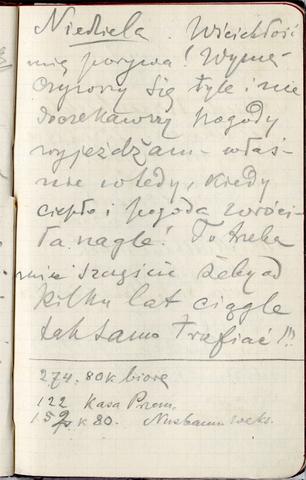 Niedziela. Wściekłość
mię porywa! Wymę-
czywszy się tyle i nie
doczekawszy pogody
wyjeżdżam – właś-
nie wtedy, kiedy
ciepło i pogoda wróci-
ła nagle! To trzeba
mieć szczęście żeby od
kilku lat ciągle
tak samo trafiać!!!
274.80 k biorę
122 Kasa Przem.
152 k 80. weks.